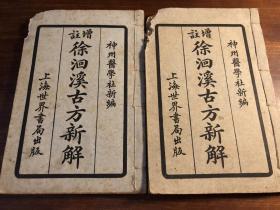 神州醫學社新編
增註
徐洄溪古方新解
上海世界書局出版
神州醫學社新編
增註
徐洄溪古方新解
上海世界書局出版